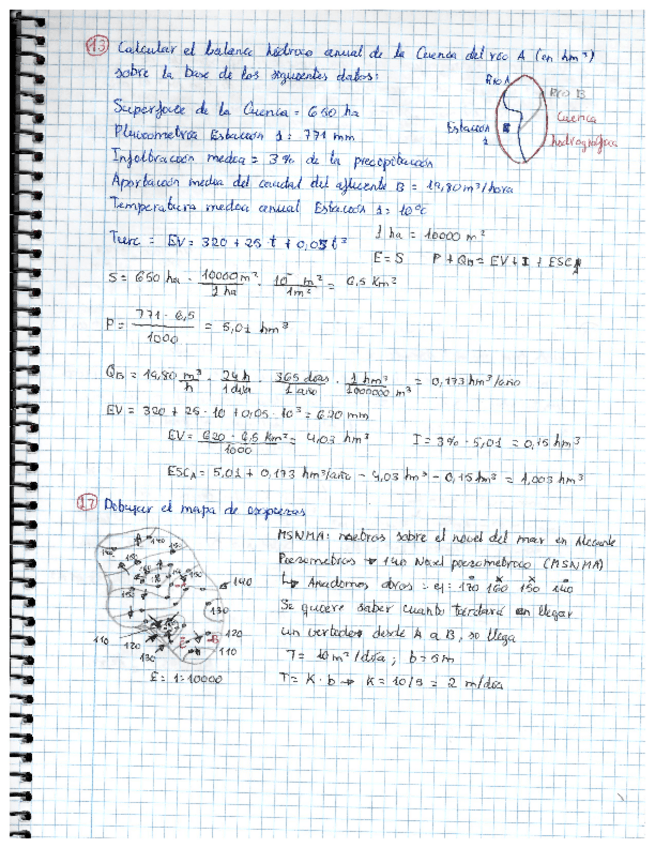 13 Calcular el balance hídrico anual de la Cuenca del río A (en hm³)
sobre la base de los siguientes datos:
Río A
Río B
Cuenca
hidrográfica
Estación
1
Superficie de la Cuenca = 650 ha
Pluviometría Estación 1: 771 mm
Infiltración media = 3% de la precipitación
Aportación media del caudal del afluente B = 19,80 m³/hora
Temperatura media anual Estación 1: 10°C
Turc = EV = 320 + 25 t + 0,05 t³
1 ha = 10000 m²
E = S P + QB = EV + I + ESCA
S = 650 ha · 10000 m² / 1 ha · m² / 1 m² = 6,5 Km²
P = 771 · 6,5 / 1000 = 5,01 hm³
QB = 19,80 m³/h · 24 h / 1 día · 365 días / 1 año · 1 hm³ / 1000000 m³ = 0,173 hm³/año
EV = 320 + 25 · 10 + 0,05 · 10³ = 620 mm
EV = 620 · 6,5 Km² / 1000 = 4,03 hm³ I = 3% · 5,01 = 0,15 hm³
ESCA = 5,01 + 0,173 hm³/año - 4,03 hm³ - 0,15 hm³ = 1,003 hm³
17 Dibujar el mapa de
MSNMA: metros sobre el nivel del mar en Alicante
Piezometros → 140 Nivel piezometrico (MSNMA)
↳ Anadimos otros : ej: 170 160 150 140
Se quiere saber cuanto tardará en llegar
un vertido desde A a B, so llega
T = 10 m²/día ; b = 5 m
T = K · b → K = 10/5 = 2 m/día
140
130
120
110
110
120
130
E = 1:10000